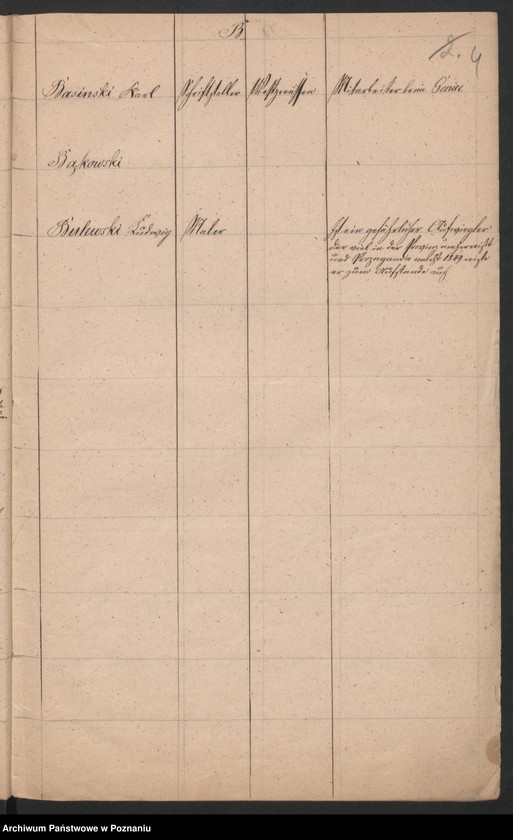 B.
2. 4
Basinski Karl Schriftsteller Westpreußen Mitarbeiter beim Goniec
Bąkowski
Bulewski Ludwig Maler Ist ein gefährlicher Aufwiegler
der viel in der Provinz umherreist
und Propaganda macht 1849 reizte
er zum Aufstande auch
Archiwum Państwowe w Poznaniu